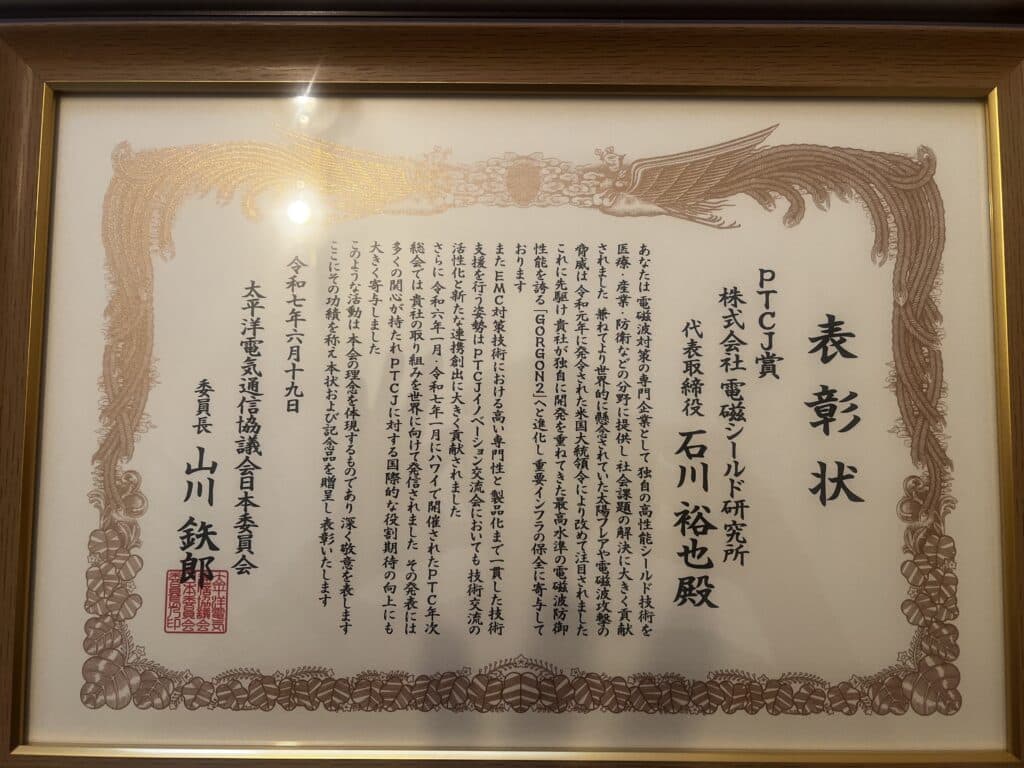 表彰状
PTCJ賞
株式会社 電磁シールド研究所
代表取締役 石川 裕也 殿
あなたは 電磁波対策の専門企業として 独自の高性能シールド技術を
医療・産業・防衛などの分野に提供し 社会課題の解決に大きく貢献
されました 兼ねてより世界的に懸念されていた太陽フレアや電磁波攻撃の
脅威は 令和元年に発令された米国大統領令により改めて注目されました
これに先駆け 貴社が独自に開発を重ねてきた最高水準の電磁波防御
性能を誇る「GORGON2」へと進化し 重要インフラの保全に寄与して
おります
また EMC対策技術における高い専門性と 製品化まで一貫した技術
支援を行う姿勢は PTCJイノベーション交流会においても 技術交流の
活性化と新たな連携創出に大きく貢献されました
さらに 令和六年一月・令和七年一月にハワイで開催されたPTC年次
総会では 貴社の取り組みを世界に向けて発信されました その発表には
多くの関心が持たれ PTCJに対する国際的な役割期待の向上にも
大きく寄与しました
このような活動は 本会の理念を体現するものであり 深く敬意を表します
ここにその功績を称え 本状および記念品を贈呈し 表彰いたします
令和七年六月十九日
太平洋電気通信協議会日本委員会
委員長 山川 鉄郎
太平洋電気
通信協議会
日本委員会
委員長乃印